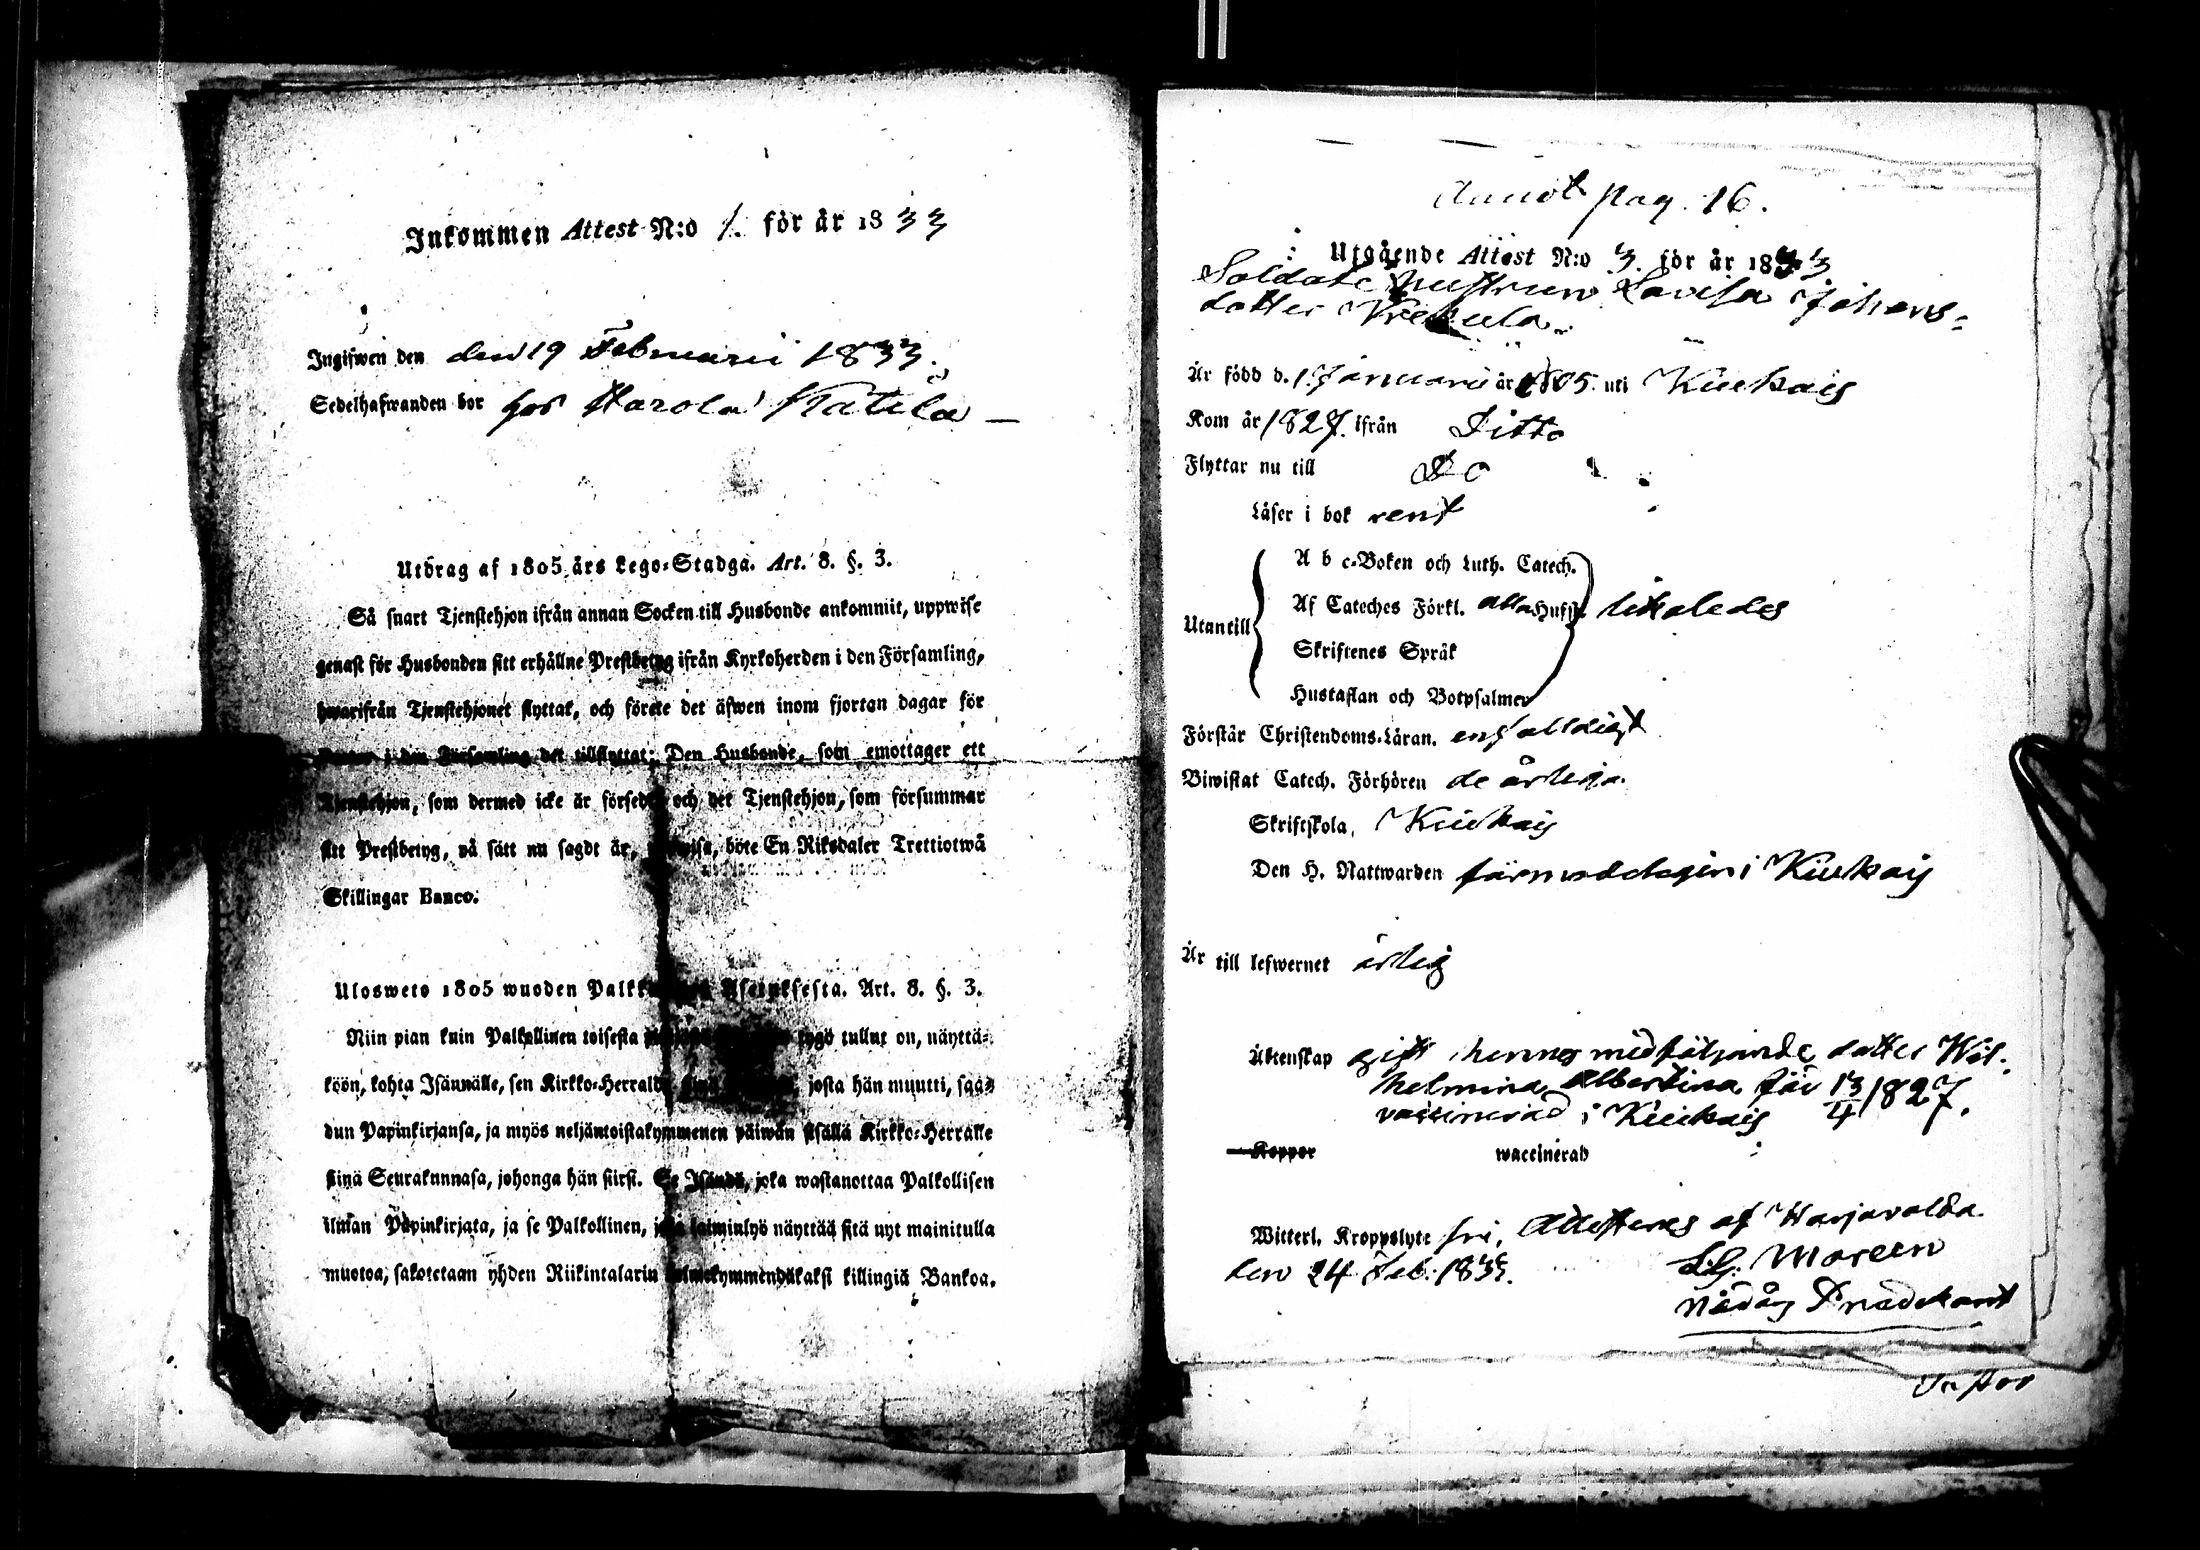 Inkommen Attest N:o 1. för år 1833
Ingifwen den den 19 Februarii 1833.
Sedelhafwanden bor hos Harola Katila
Utdrag af 1805 års Lego-Stadga. Art. 8. §. 3.
Så snart Tjenstehjon ifrån annan Socken till Husbonde ankommit, uppwise
genast för Husbonden sitt erhållne Prestbetyg ifrån Kyrkoherden i den Församling,
hwarifrån Tjenstehjonet flyttat, och förete det äfwen inom fjorton dagar för
i den Församling det tillflyttat: Den Husbonde, som emottager ett
Tjenstehjon, som dermed icke är försedt och det Tjenstehjon, som försummar
sitt Prestbetyg, på sätt nu sagdt är, böte En Riksdaler Trettiotwå
Skillingar Banco.
Ulosweto 1805 wuoden Asetuksesta. Art. 8. §. 3.
Niin pian kuin Palkollinen toisesta tygö tullut on, näyttä-
köön, kohta Isännälle, sen Kirkko-Herralda josta hän muutti, saa-
dun Papinkirjansa, ja myös neljäntoistakymmenen päiwän sisällä Kirkko-Herralle
siinä Seurakunnasa, johonga hän siirsi. Se Isändä, joka wastanottaa Palkollisen
ilman Papinkirjata, ja se Palkollinen, joka laiminlyö näyttää sitä nyt mainitulla
muotoa, sakotetaan yhden Riikintalarin kolmekymmendäkaksi killingiä Bankoa.
Annot pag. 16.
Utgående Attest N:o 3. för år 1833
Soldats hustrun Lovisa Johans-
dotter
Är född d. 1. Januarii år 1805. uti Kiukais
Kom år 1827. ifrån Ditto
Flyttar nu till Do
Läser i bok rent
Utantill
A b c-Boken och Luth. Catech.
Af Cateches Förkl. alla Hufst. likaledes
Skriftenes Språk
Hustaflan och Botpsalmer
Förstår Christendoms-Läran. enfalldigt
Biwistat Catech. Förhören de årliga.
Skriftskola, Kiukais
Den H. Nattwarden i Kiukais
Är till lefwernet ärlig
Äktenskap gift hennes medföljande dotter Wil-
helmina Albertina för 13/4 1827.
vaccinerad i Kiukais
Koppor waccinerad
Witterl. Kroppslyte fri, Attesteras af Harjavalda
den 24 Feb. 1833.
Moreen
Nådår Prædikant